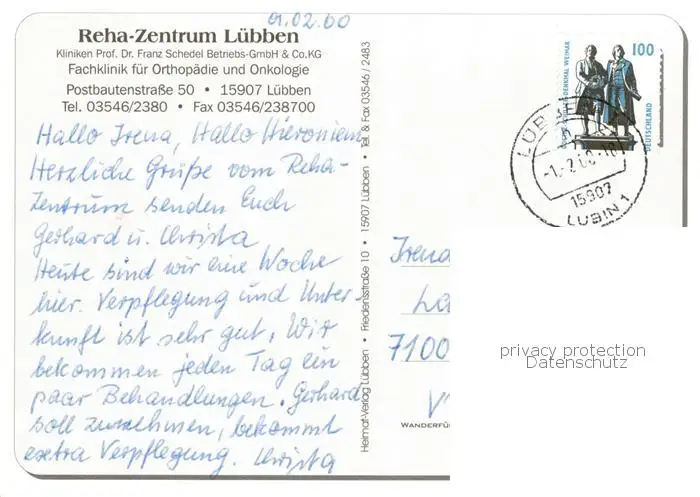 01.02.00
Reha-Zentrum Lübben
Kliniken Prof. Dr. Franz Schedel Betriebs-GmbH & Co.KG
Fachklinik für Orthopädie und Onkologie
Postbautenstraße 50 • 15907 Lübben
Tel. 03546/2380 • Fax 03546/238700
Hallo Irena, Hallo Hieroniem
Herzliche Grüße vom Reha-
Zentrum senden Euch
Gerhard u. Christa
Heute sind wir eine Woche
hier. Verpflegung und Unter-
kunft ist sehr gut. Wir
bekommen jeden Tag ein
paar Behandlungen. Gerhard
soll zunehmen, bekommt
extra Verpflegung. Christa
Heimat-Verlag Lübben • Friedensstraße 10 • 15907 Lübben • Tel. & Fax 03546/2483
100
DEUTSCHLAND
15907
LUBIN 1
Irena
7100
WANDERFÜ
privacy protection
Datenschutz